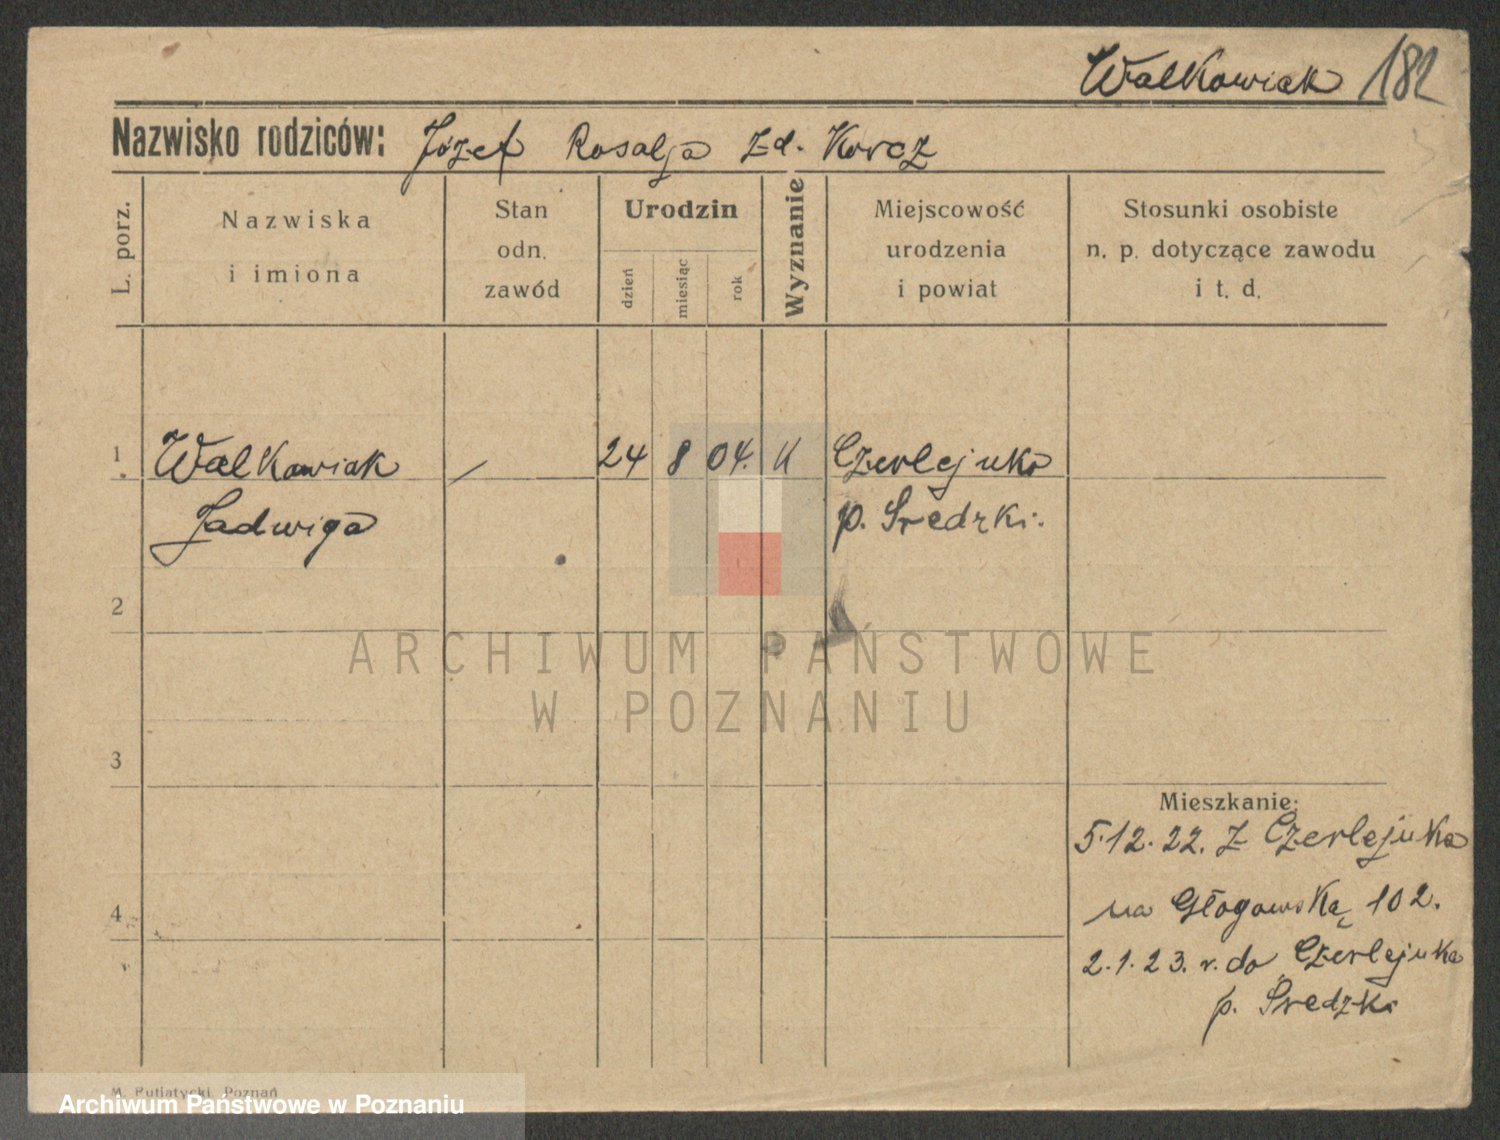 Walkowiak 182
Nazwisko rodziców: Józef Rosalja z d. Korcz
L. porz.
Nazwiska
i imiona
Stan
odn.
zawód
Urodzin
dzień
miesiąc
rok
Wyznanie
Miejscowość
urodzenia
i powiat
Stosunki osobiste
n. p. dotyczące zawodu
i t. d.
1 Walkowiak / 24 8 04. K Czerlejnko
Jadwiga p. Średzki.
2
ARCHIWUM PAŃSTWOWE
W POZNANIU
3
Mieszkanie:
5.12.22. z Czerlejnka
na Głogowską 102.
4
2.1.23. r. do Czerlejnka
p. Średzki
M. Putiatycki, Poznań
Archiwum Państwowe w Poznaniu